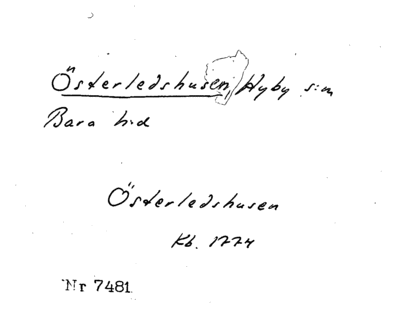 Österledshusen, Hyby s:m
Bara h:d
Österledshusen
Kb. 1774
Nr 7481